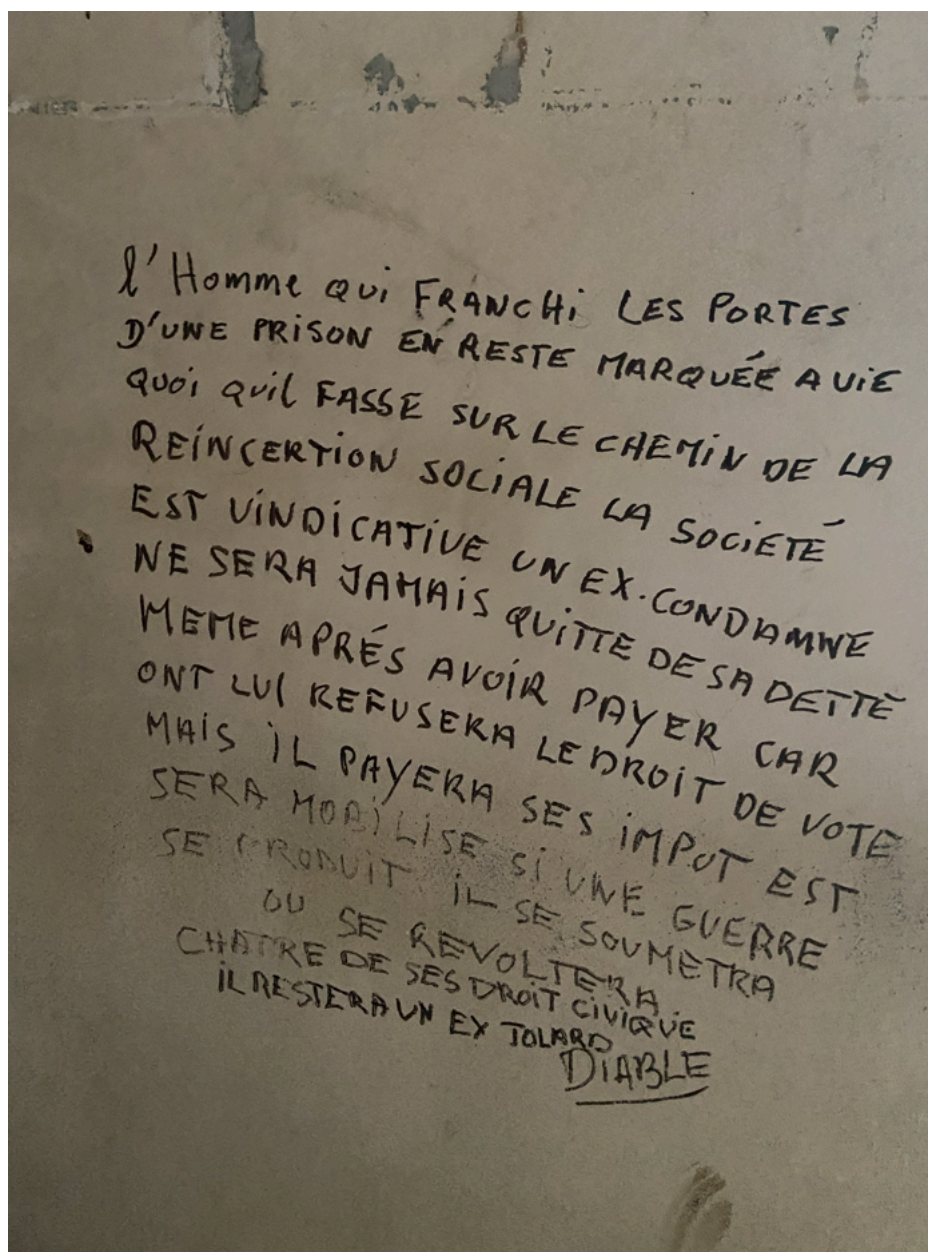 l'Homme qui FRANCHi LES PORTES
D'UNE PRISON EN RESTE MARQUÉE A ViE
QUOi QUiL FASSE SUR LE CHEMiN DE LA
REiNCERTiON SOCiALE LA SOCiETÉ
EST ViNDiCATiVE UN EX.CONDAMNE
NE SERA JAMAiS QUiTTE DE SA DETTE
MEME APRÉS AVOiR PAYER CAR
ONT LUi REFUSERA LE DROiT DE VOTE
MAiS iL PAYERA SES iMPOT EST
SERA MOBiLiSE Si UNE GUERRE
SE PRODUiT iL SE SOUMETRA
OU SE REVOLTERA
CHATRE DE SES DROiT CiViQUE
iL RESTERA UN EX TOLARD
DiABLE